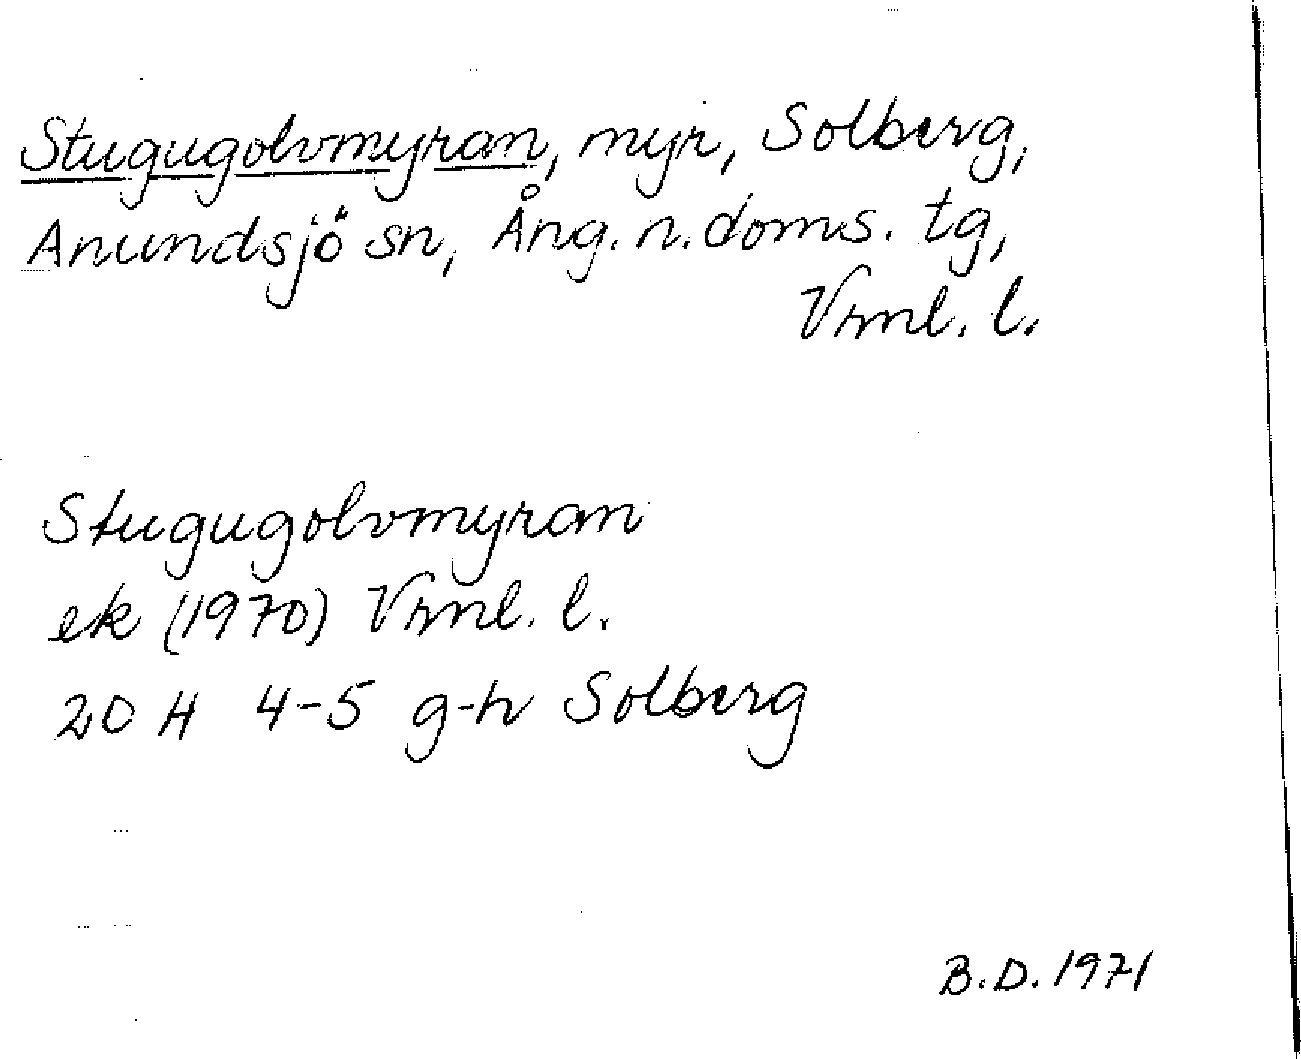 Stugugolvmyran, myr, Solberg,
Anundsjö sn, Ång. n. doms. tg,
Vrnl. l.
Stugugolvmyran
ek (1970) Vrnl. l.
20 H 4-5 g-h Solberg
B.D. 1971